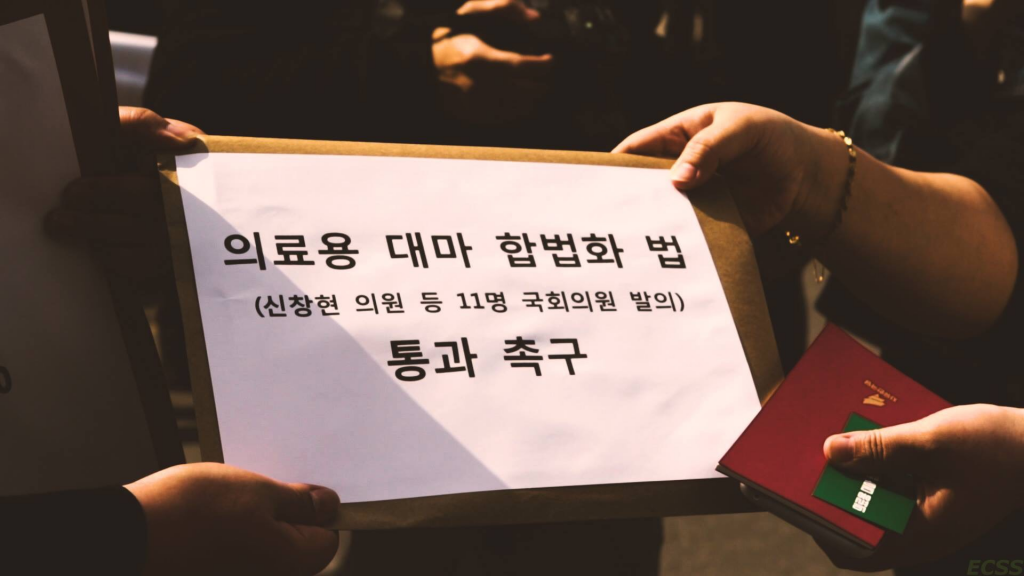 의료용 대마 합법화 법
(신창현 의원 등 11명 국회의원 발의)
통과 촉구
ECSS